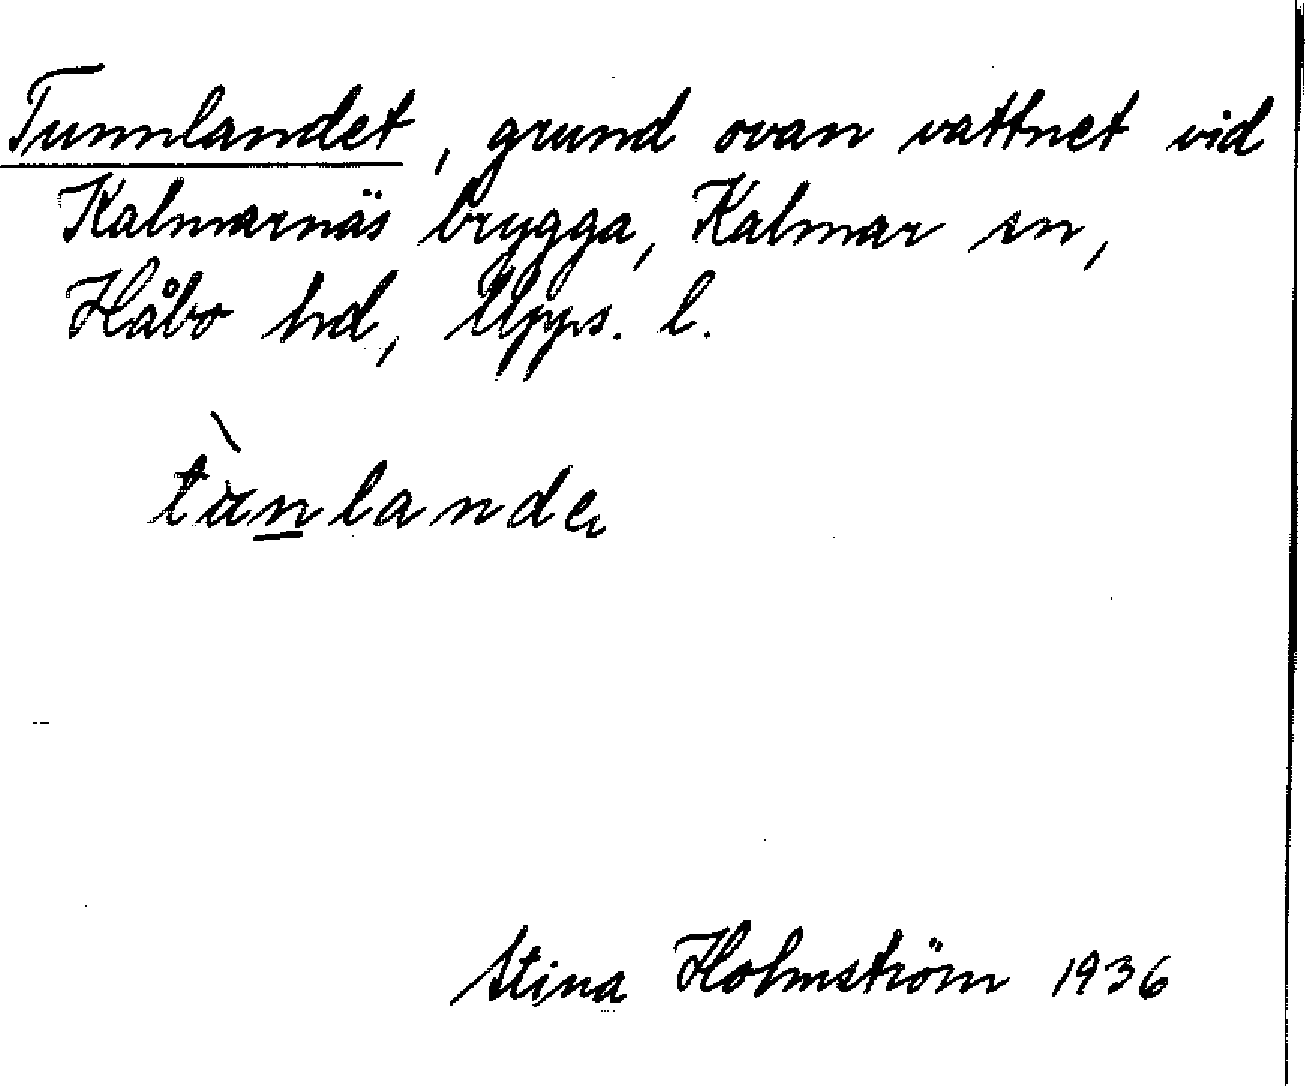 Tunnlandet, grund ovan vattnet vid
Kalmarnäs brygga, Kalmar sn,
Håbo hd, Upps. l.
Stina Holmström 1936